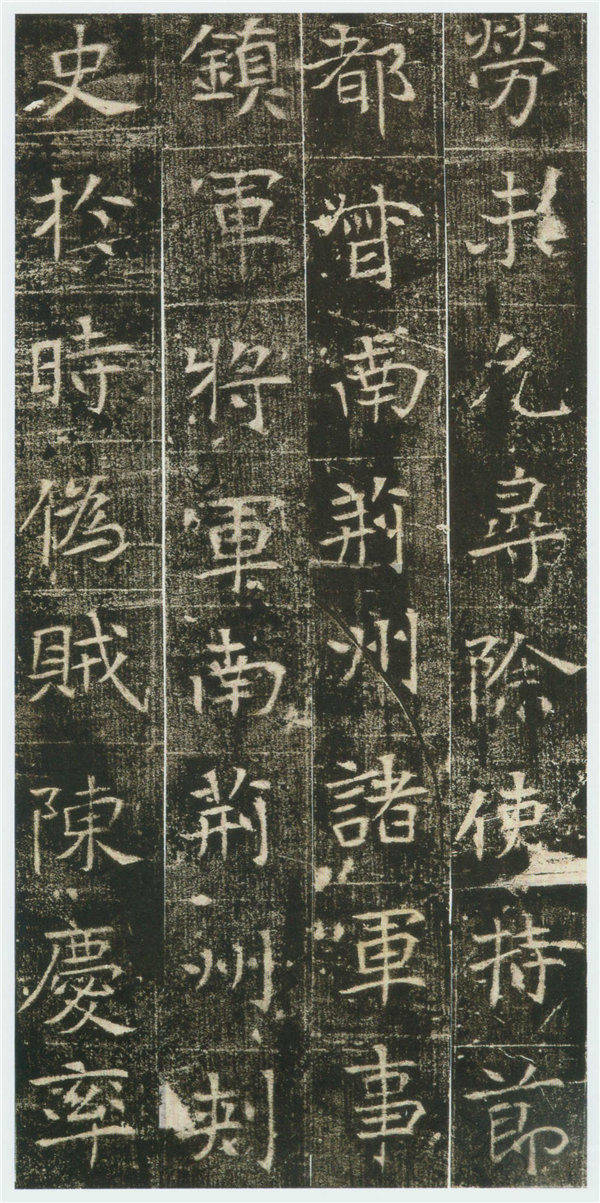 勞未允尋除使持節
都督南荊州諸軍事
鎮軍將軍南荊州刾
史於時偽賊陳慶率